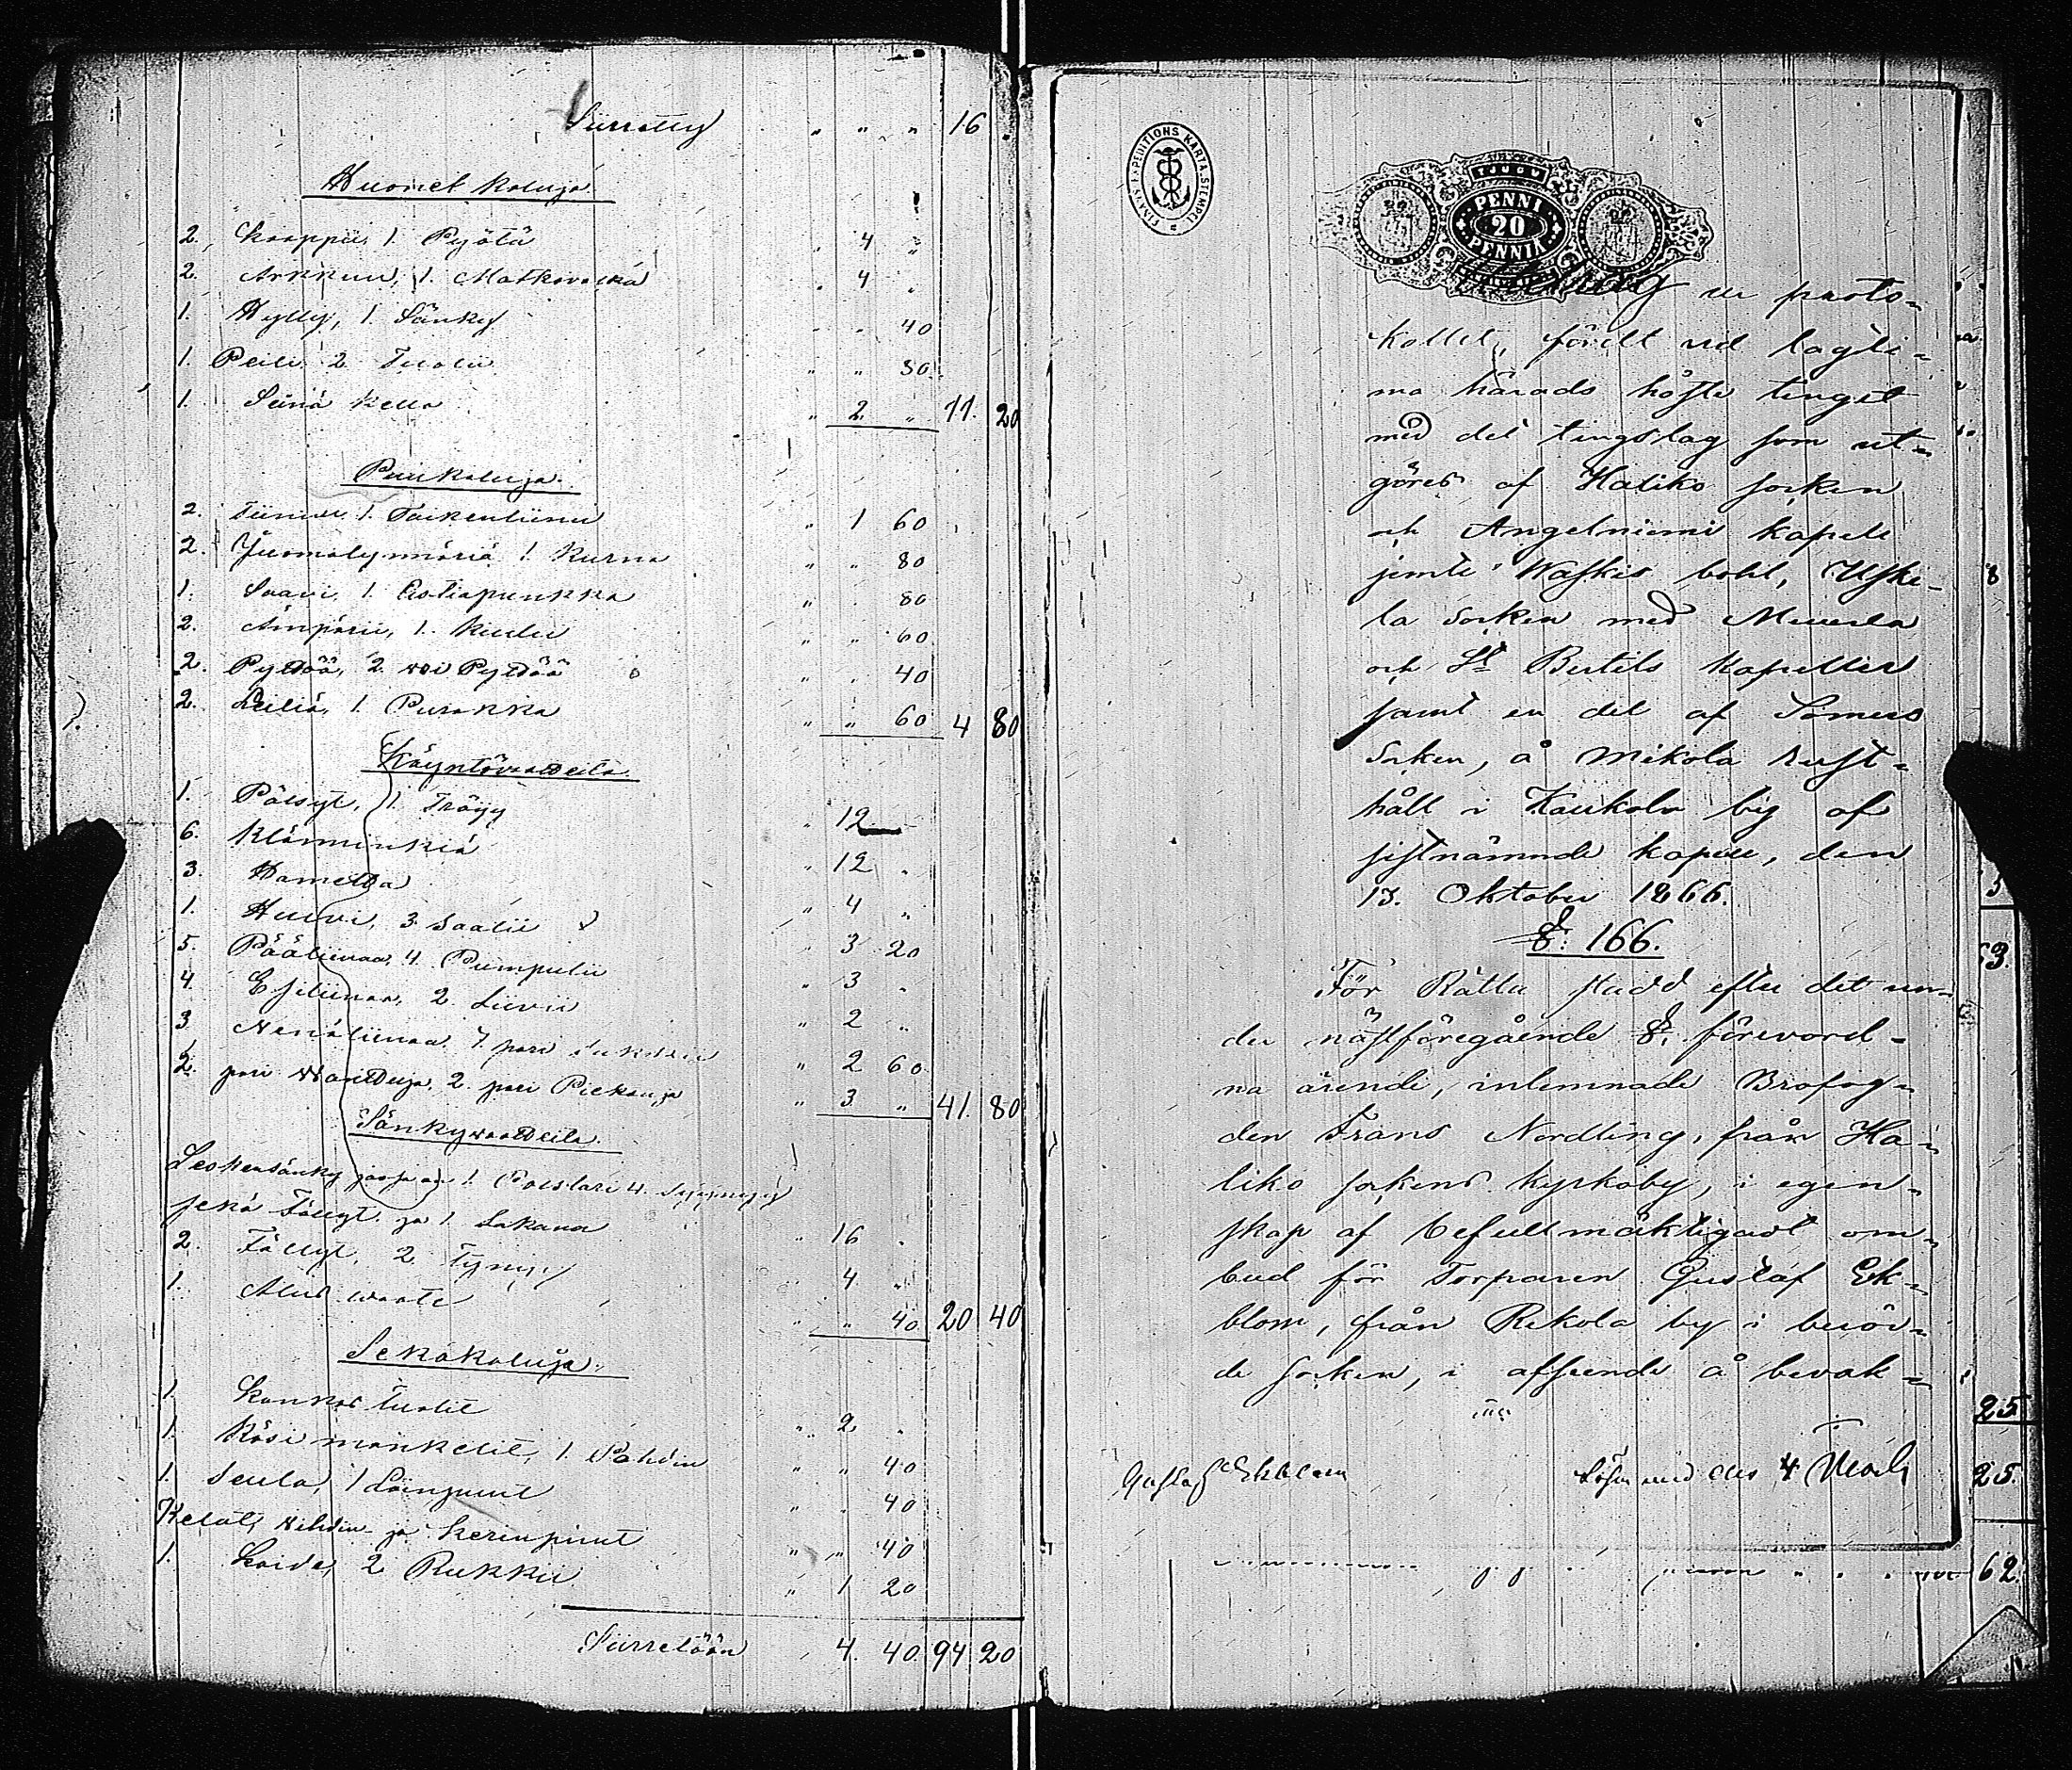 Siirretty " " " 16 "
Huonet kaluja.
2. Kaappii, 1. Pyötä " 4 "
2. Arkkuu, 1. Matkavakka " 4 "
1. Hylly, 1. Sänky " " 40
1. Peili, 2 Tuolii " " 80
1. Seinä kello " 2 " 11. 20
Puukaluja.
2. Tiinuu, 1. Taikentiinu " 1 60
2. Juomatynnöriä 1 Kurna " " 80
1. Saavi, 1. Astiapunkka " " 80
2. Ämpärii, 1. Kiulu " " 60
2. Pyttöö, 2. woi Pyttöö " " 40
2. Leiliä, 1. Purakka " " 60 4 80
Käyntövaatteita
1. Pälsyt, 1. Tröyy " 12 "
6. Klänninkiä " 12 "
3. Hametta " 4 "
1. Huivi, 3. Saalii " 3 20
5. Pääliinaa, 4. Pumpulii " 3 "
4. Esiliinaa, 2. Liivii " 2 "
3. Nenäliinaa, 7. pari Sukkia " 2 60
2. pari Wanttuja, 2. pari Pieksuja " 3 " 41. 80
Sänkywaatteita.
Leskensänky jossa on 1. Polstari 4. Tyynyyä
sekä Tällyt. ja 1. Lakana " 16 "
2. Tällyt, 2. Tyyny " 4 "
1. Alus waate " " 40 20 40
Sekakaluja.
1. Kankas tuolit " 2 "
1. Käsi mankelit, 1. Pahdin " " 40
1. Seula, 1 " " 40
Kelat, Nihdin- ja kerinpuut " " 40
1. Kaide, 2 Rukkii " 1 20
Siirretöön " 4. 40 94 20
FINSKA EXPEDITIONS KARTA. STEMPEL
TJUGU
PENNI
20
PENNIÄ
Utdrag ur proto-
kollet, fördt vid lagti-
ma härads höste tinget
med det tingslag som ut-
göres af Haliko socken
och Angelniemi kapell
jemte Waskis bohl, Uske-
la socken med Muurla
och St Bertils kapeller
samt en del af Somero
socken, å Mikola rust-
håll i Kaukola by af
sistnämnde kapell, den
13. Oktober 1866.
§: 166.
För Rätta stadd efter det un-
der nästföregående §. förevord-
na ärende, inlemnade Brofog-
den Frans Nordling, från Ha-
liko sockens kyrkoby, i egen-
skap af befullmäktigadt om-
bud för Torparen Gustaf Ek-
blom, från Rekola by i berör-
de socken, i afseende å bevak-
Gustaf Ekblom Löses med 4 Mark
8
3.
25
25.
62.